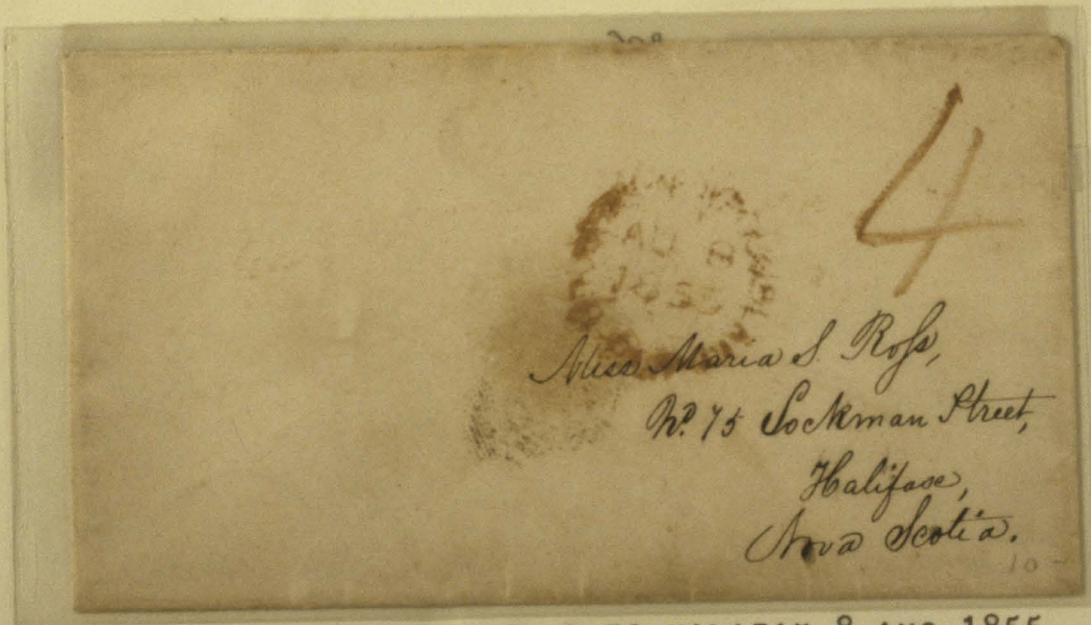 4
AU
1855
Miss Maria S. Ross,
No. 75 Lockman Street,
Halifax,
Nova Scotia.
10-
8 AUG 1855